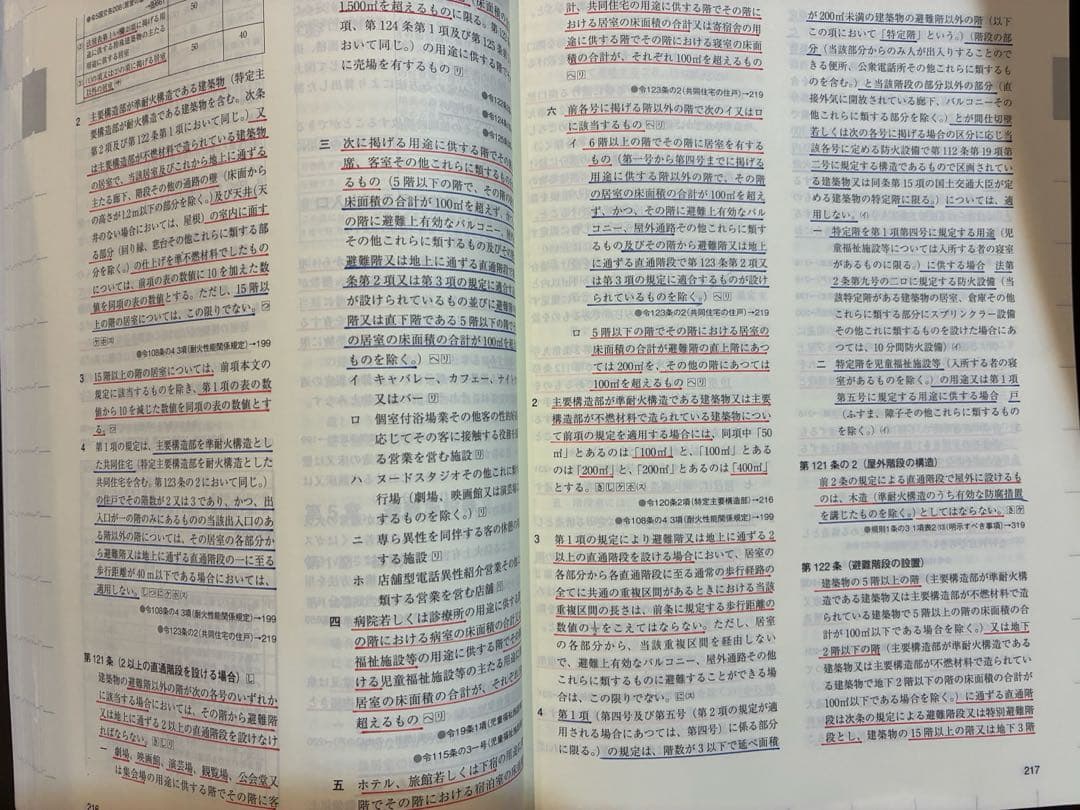 ②
法別表第1(い)欄(1)項に掲げる用
途に供する特殊建築物の主たる
用途に供する居室
50
③
(1)の項又は(2)の項に掲げる居室
以外の居室
50
40
2 主要構造部が準耐火構造である建築物(特定主
要構造部が耐火構造である建築物を含む。次条
第2項及び第122条第1項において同じ。)又
は主要構造部が不燃材料で造られている建築物
の居室で、当該居室及びこれから地上に通ずる
主たる廊下、階段その他の通路の壁(床面から
の高さが1.2m以下の部分を除く。)及び天井(天
井のない場合においては、屋根)の室内に面す
る部分(回り縁、窓台その他これらに類する部
分を除く。)の仕上げを準不燃材料でしたもの
については、前項の表の数値に10を加えた数
値を同項の表の数値とする。ただし、15階以
上の階の居室については、この限りでない。
●令108条の4 3項(耐火性能関係規定)→199
3 15階以上の階の居室については、前項本文の
規定に該当するものを除き、第1項の表の数
値から10を減じた数値を同項の表の数値とす
る。
4 第1項の規定は、主要構造部を準耐火構造とし
た共同住宅(特定主要構造部を耐火構造とした
共同住宅を含む。第123条の2において同じ。)
の住戸でその階数が2又は3であり、かつ、出
入口が一の階のみにあるものの当該出入口のあ
る階以外の階については、その居室の各部分か
ら避難階又は地上に通ずる直通階段の一に至る
歩行距離が40m以下である場合においては、
適用しない。
●令108条の4 3項(耐火性能関係規定)→199
●令123条の2(共同住宅の住戸)→219
第121条(2以上の直通階段を設ける場合)
建築物の避難階以外の階が次の各号のいずれか
に該当する場合においては、その階から避難階
又は地上に通ずる2以上の直通階段を設けなけ
ればならない。
一 劇場、映画館、演芸場、観覧場、公会堂又
は集会場の用途に供する階でその階に客
216
1,500㎡を超えるものに限る。第12
項、第124条第1項及び第125条第
おいて同じ。)の用途に供する階で
に売場を有するもの
●令122条
●令124条
●令125
三 次に掲げる用途に供する階でその
席、客室その他これらに類するもの
るもの(5階以下の階で、その階の
床面積の合計が100㎡を超えず、か
の階に避難上有効なバルコニー、屋外
その他これらに類するもの及びその
避難階又は地上に通ずる直通階段で
条第2項又は第3項の規定に適合する
が設けられているもの並びに避難階
階又は直下階である5階以下の階で
の居室の床面積の合計が100㎡を超え
ものを除く。)
イ キャバレー、カフェー、ナイト
又はバー
ロ 個室付浴場業その他客の性的好
応じてその客に接触する役務を
る営業を営む施設
ハ ヌードスタジオその他これに類
行場(劇場、映画館又は演芸場
するものを除く。)
ニ 専ら異性を同伴する客の休憩の
する施設
ホ 店舗型電話異性紹介営業その
類する営業を営む店舗
四 病院若しくは診療所の用途に供する
の階における病室の床面積の合計又は
福祉施設等の用途に供する階でその階
ける児童福祉施設等の主たる用途に
居室の床面積の合計が、それぞれ
超えるもの
●令19条1項(児童福祉施設
●令115条の3一号(児童福祉施
五 ホテル、旅館若しくは下宿の用途に
階でその階における宿泊室の床面積
計、共同住宅の用途に供する階でその階に
おける居室の床面積の合計又は寄宿舎の用
途に供する階でその階における寝室の床面
積の合計が、それぞれ100㎡を超えるもの
●令123条の2(共同住宅の住戸)→219
六 前各号に掲げる階以外の階で次のイ又はロ
に該当するもの
イ 6階以上の階でその階に居室を有する
もの(第一号から第四号までに掲げる
用途に供する階以外の階で、その階
の居室の床面積の合計が100㎡を超え
ず、かつ、その階に避難上有効なバル
コニー、屋外通路その他これらに類す
るもの及びその階から避難階又は地上
に通ずる直通階段で第123条第2項又
は第3項の規定に適合するものが設け
られているものを除く。)
●令123条の2(共同住宅の住戸)→219
ロ 5階以下の階でその階における居室の
床面積の合計が避難階の直上階にあつ
ては200㎡を、その他の階にあつては
100㎡を超えるもの
2 主要構造部が準耐火構造である建築物又は主要
構造部が不燃材料で造られている建築物につい
て前項の規定を適用する場合には、同項中「50
㎡」とあるのは「100㎡」と、「100㎡」とあ
るのは「200㎡」と、「200㎡」とあるのは「400㎡」
とする。
●令120条2項(特定主要構造部)→216
●令108条の4 3項(耐火性能関係規定)→199
3 第1項の規定により避難階又は地上に通ずる2
以上の直通階段を設ける場合において、居室の
各部分から各直通階段に至る通常の歩行経路の
全てに共通の重複区間があるときにおける当該
重複区間の長さは、前条に規定する歩行距離の
数値の1/2をこえてはならない。ただし、居室
の各部分から、当該重複区間を経由しない
で、避難上有効なバルコニー、屋外通路その他
これらに類するものに避難することができる場
合は、この限りでない。
4 第1項(第四号及び第五号(第2項の規定が適
用される場合にあつては、第四号)に係る部分
に限る。)の規定は、階数が3以下で延べ面積
が200㎡未満の建築物の避難階以外の階(以下
この項において「特定階」という。)(階段の部
分(当該部分からのみ人が出入りすることので
きる便所、公衆電話所その他これらに類するも
のを含む。)と当該階段の部分以外の部分(直
接外気に開放されている廊下、バルコニーその
他これらに類する部分を除く。)とが間仕切壁
若しくは次の各号に掲げる場合の区分に応じ当
該各号に定める防火設備で第112条第19項第
二号に規定する構造であるもので区画されてい
る建築物又は同条第15項の国土交通大臣が定
める建築物の特定階に限る。)については、適
用しない。
一 特定階を第1項第四号に規定する用途(児
童福祉施設等については入所する者の寝室
があるものに限る。)に供する場合 法第
2条第九号の二ロに規定する防火設備(当
該特定階がある建築物の居室、倉庫その他
これらに類する部分にスプリンクラー設備
その他これに類するものを設けた場合にあ
つては、10分間防火設備)
二 特定階を児童福祉施設等(入所する者の寝
室があるものを除く。)の用途又は第1項
第五号に規定する用途に供する場合 戸
(ふすま、障子その他これらに類するもの
を除く。)
第121条の2(屋外階段の構造)
前2条の規定による直通階段で屋外に設けるも
のは、木造(準耐火構造のうち有効な防腐措置
を講じたものを除く。)としてはならない。
●規則1条の3 1項表2⒀(明示すべき事項)→319
第122条(避難階段の設置)
建築物の5階以上の階(主要構造部が準耐火構
造である建築物又は主要構造部が不燃材料で造
られている建築物で5階以上の階の床面積の合
計が100㎡以下である場合を除く。)又は地下
2階以下の階(主要構造部が準耐火構造である
建築物又は主要構造部が不燃材料で造られてい
る建築物で地下2階以下の階の床面積の合計が
100㎡以下である場合を除く。)に通ずる直通階
段は次条の規定による避難階段又は特別避難階
段とし、建築物の15階以上の階又は地下3階
217